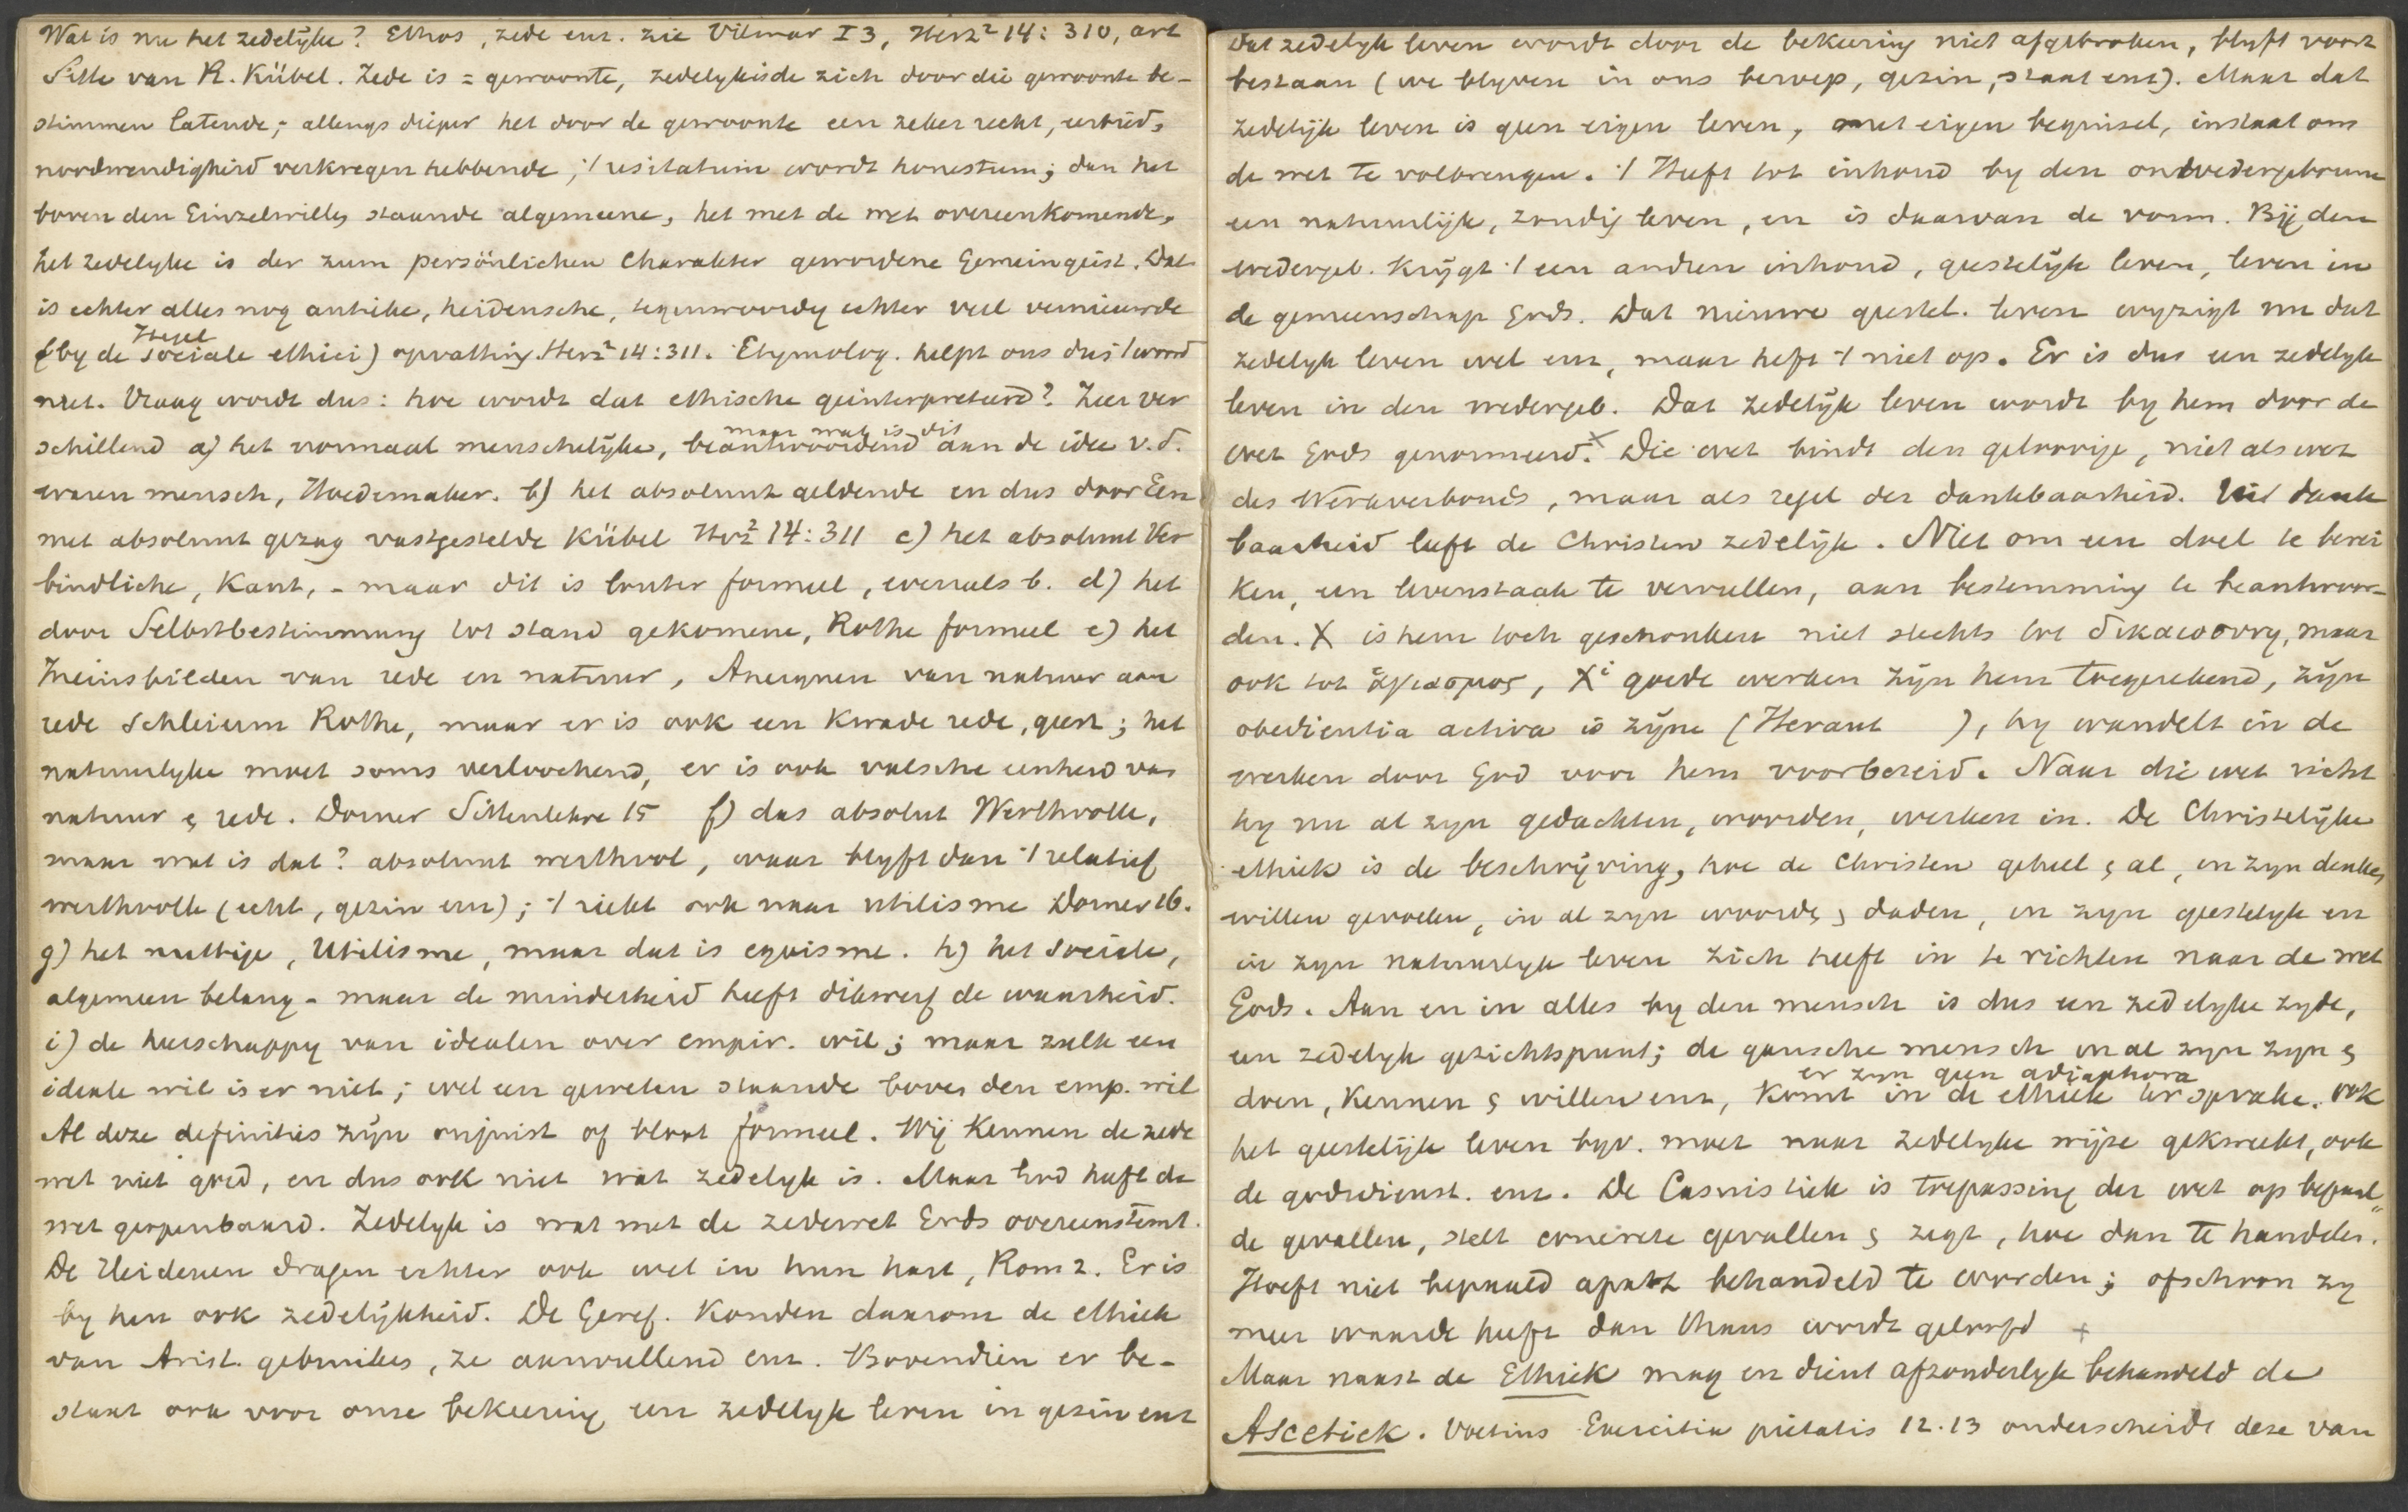 Wat is nu het zedelijke? Ethos, zede enz. zie Vilmar I 3, Herz² 14: 310, art
Sitte van R. Kübel. Zede is = gewoonte, zedelyk is de zich door die gewoonte be-
stimmen latende; allengs dieper het door de gewoonte een zeker recht, eerbied,
noodwendigheid verkregen hebbende; 't usitatum wordt honestum; dan het
boven den Einzelwillen staande algemeene, het met de wet overeenkomende,
het zedelyke is der zum persönlichen Charakter gewordene Gemeingeist. Dat
is echter alles nog antieke, heidensche, tegenwoordig echter veel vernieuwde
Hegel
(by de sociale ethici) opvatting Herz² 14:311. Etymolog. helpt ons dus 't woord
niet. Vraag wordt dus: hoe wordt dat ethische geinterpreteerd? Zeer ver
maar wat is dit
schillend a) het normaal menschelijke, beantwoordend aan de idee v.d.
waren mensch, Hoedemaker. b) het absoluut geldende en dus door Een
met absoluut gezag vastgestelde Kübel Herz² 14:311 c) het absolunt Ver
bindliche, Kant, - maar dit is louter formeel, evenals b. d) het
door Selbstbestimmung tot stand gekomene, Rothe formeel e) het
Ineinsbilden van rede en natuur, Aneignen van natuur aan
rede Schleierm Rothe, maar er is ook een kwade rede, geest; het
natuurlyke moet soms verloochend, er is ook valsche eenheid van
natuur & rede. Dorner Sittenlehre 15 f) das absolut Werthvolle,
maar wat is dat? absoluut werthvol, waar blyft dan 't relatief
werthvolle (echt, gezin enz); 't riekt ook naar utilisme Dorner 16.
g) het nuttige, Utilisme, maar dat is egoisme. h) het sociale,
algemeen belang - maar de minderheid heeft dikwerf de waarheid.
i) de heerschappy van idealen over empir. wil; maar zulk een
ideale wil is er niet; wel een geweten staande boven den emp. wil
Al deze definities zijn onjuist of bloot formeel. Wij kennen de zede
wet niet goed, en dus ook niet wat zedelyk is. Maar God heeft de
wet geopenbaard. Zedelyk is wat met de zedewet Gods overeenstemt.
De Heidenen dragen echter ook wet in hun hart, Rom 2. Er is
by hen ook zedelijkheid. De Geref. konden daarom de ethiek
van Arist. gebruiken, ze aanvullend enz. Bovendien er be-
staat ook voor onze bekeering een zedelyk leven in gezin enz
Dat zedelyk leven wordt door de bekeering niet afgebroken, blyft voort
bestaan (we blyven in ons beroep, gezin, staat enz). Maar dat
zedelijk leven is geen eigen leven, met eigen beginsel, in staat om
de wet te volbrengen. 't Heeft tot inhoud by den onwedergeborene
een natuurlijk, zondig leven, en is daarvan de vorm. Bij den
wedergeb. krijgt 't een andren inhoud, geestelijk leven, leven in
de gemeenschap Gods. Dat nieuwe geestel. leven wyzigt nu dat
zedelyk leven wel en, maar heft 't niet op. Er is dus een zedelyk
leven in den wedergeb. Dat zedelijk leven wordt by hem door de
wet Gods genormeerd. × Die wet bindt den geloovige, niet als wet
des Werkverbonds, maar als regel der dankbaarheid. Uit dank
baarheid leeft de Christen zedelijk. Niet om een doel te berei
ken, een levenstaak te vervullen, aan bestemming te beantwoor-
den. X is hem toch geschonken niet slechts tot δικαιοσυνη, maar
ook tot ἁγιασμος, Xⁱ goede werken zijn hem toegerekend, zijn
obedientia activa is zijne (Heraut ), hy wandelt in de
werken door God voor hem voorbereid. Naar die wet richt
hy nu al zyn gedachten, woorden, werken in. De Christelijke
ethiek is de beschrijving, hoe de Christen geheel & al, in zyn denken
willen gevoelen, in al zyn woorden & daden, in zyn geestelyk en
in zyn natuurlyk leven zich heeft in te richten naar de wet
Gods. Aan en in alles by den mensch is dus een zedelyke zyde,
een zedelyk gezichtspunt; de gansche mensch in al zyn zyn &
er zyn geen adiaphora
doen, kennen & willen enz, komt in de ethiek ter sprake. ook
het geestelijk leven byv. moet naar zedelyke wijze gekweekt, ook
de godsdienst. enz. De Casuistiek is toepassing der wet op bepaal"
de gevallen, stelt concrete gevallen & zegt, hoe dan te handelen.
Hoeft niet bepaald apart behandeld te worden; ofschoon zy
meer waarde heeft dan thans wordt geloofd +
Maar naast de Ethiek mag en dient afzonderlyk behandeld de
Ascetiek. Voetius Exercitia pietatis 12.13 onderscheidt deze van